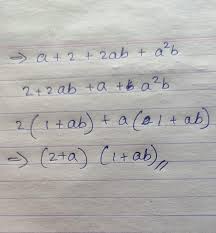 ⇒ a + 2 + 2ab + a²b
2 + 2ab + a + a²b
2 ( 1 + ab ) + a ( 1 + ab )
⇒ (2+a) (1+ab)